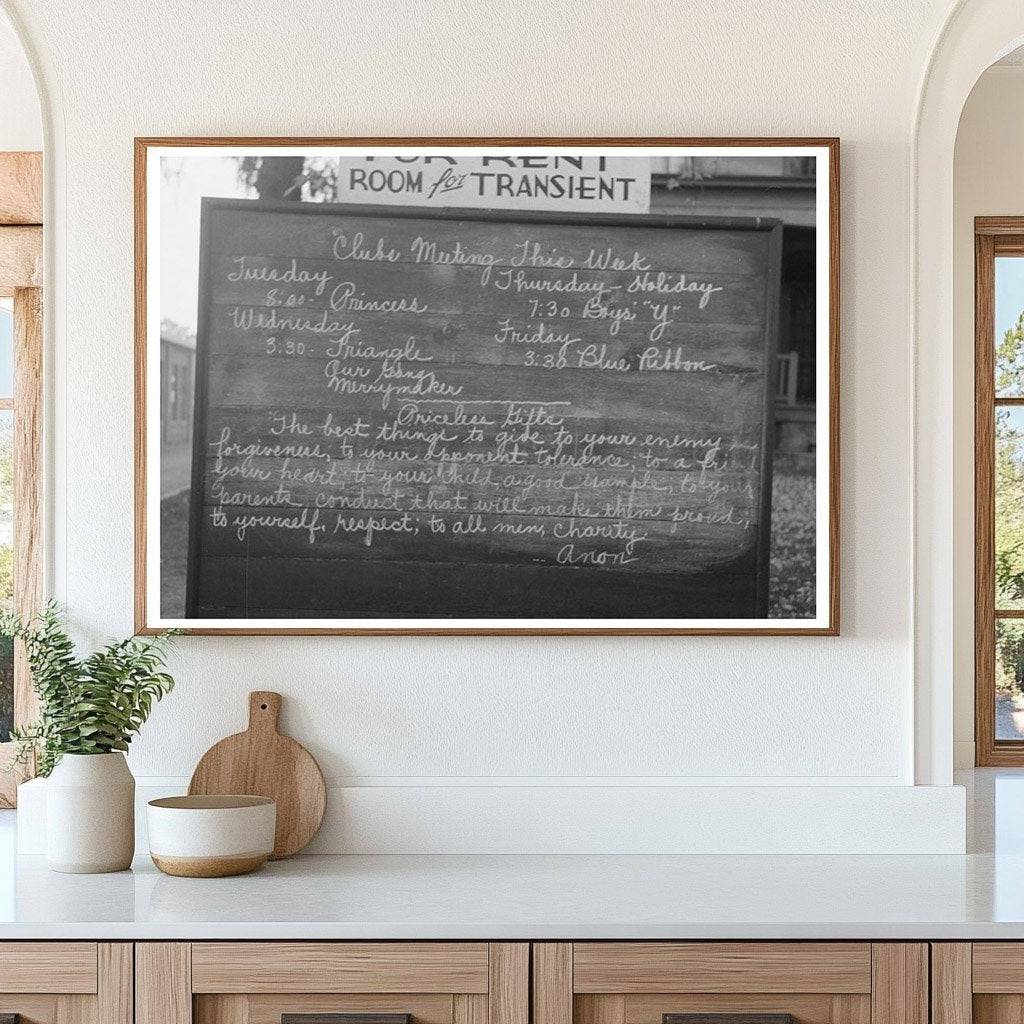 FOR RENT
ROOM for TRANSIENT
Clubs Meeting This Week
Tuesday
8:00- Princess
Wednesday
3:30- Triangle
Our Gang
Merrymaker
Thursday - Holiday
7:30 Boys' "Y"
Friday
3:30 Blue Ribbon
Priceless Gifts
"The best things to give to your enemy
forgiveness, to your opponent tolerance, to a
your heart, to your child a good example, to your
parents conduct that will make them proud,
to yourself, respect; to all men, charity
-- Anon